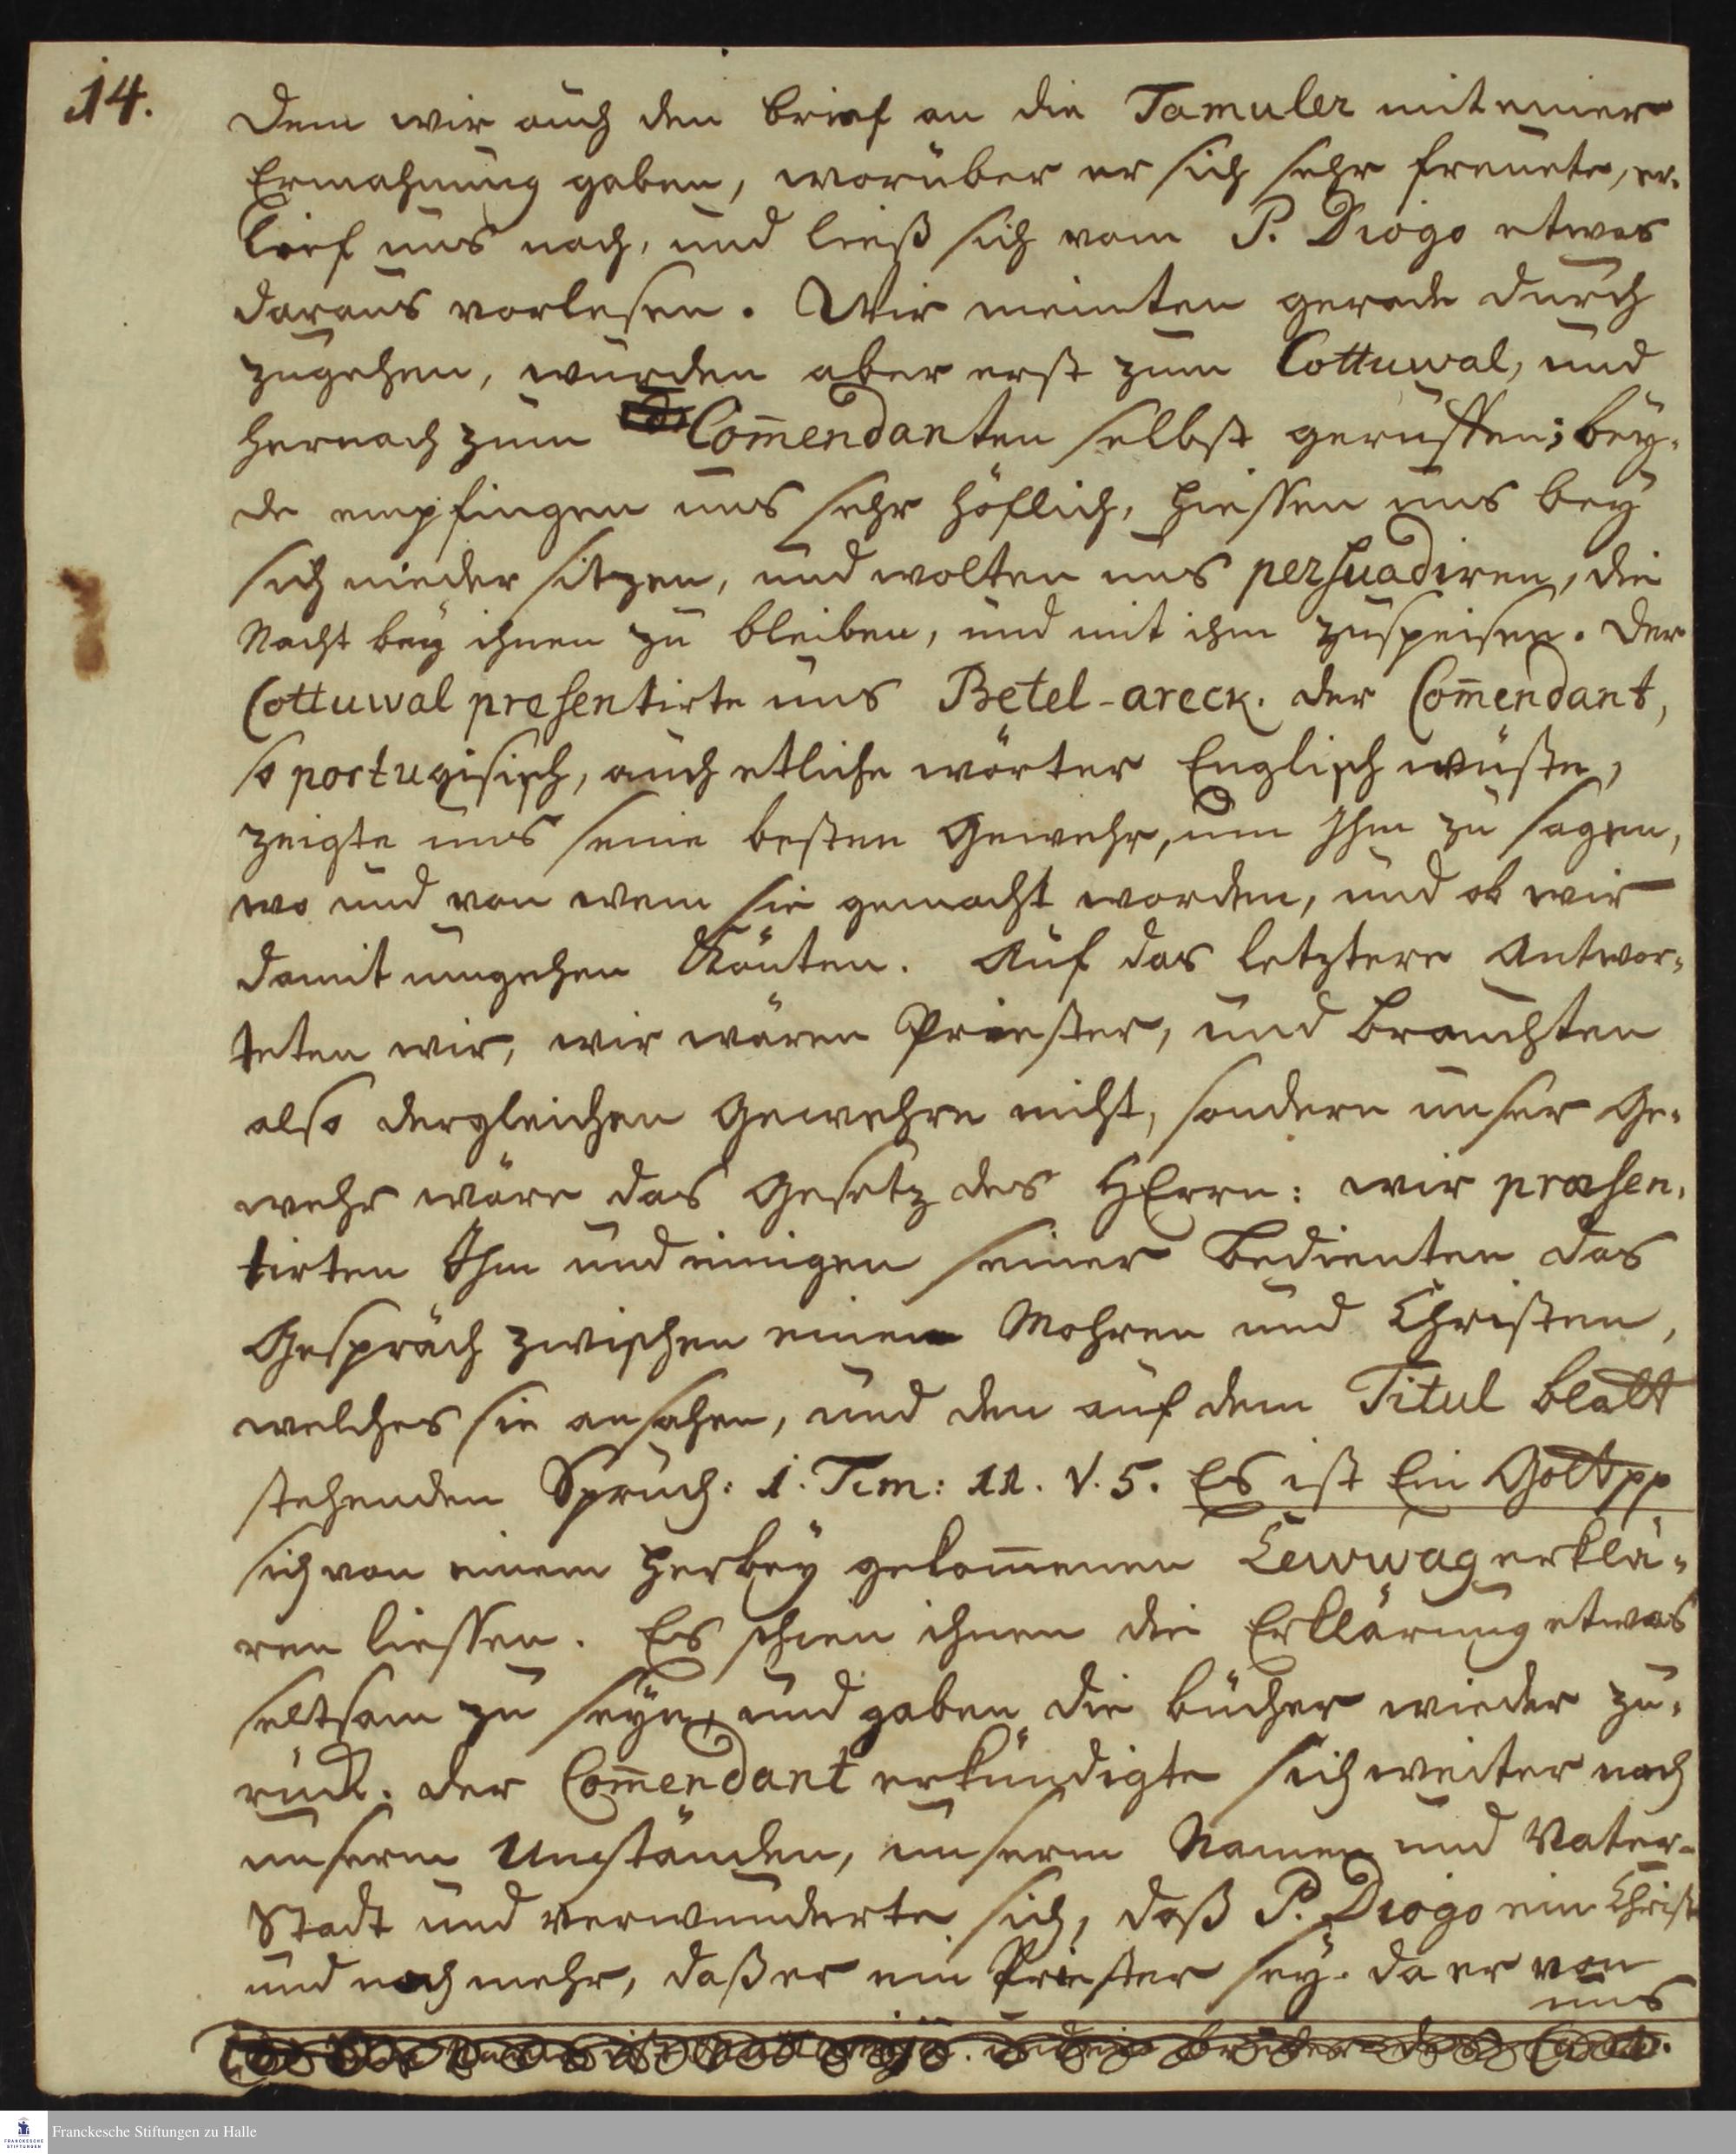 14.
Dem wir auch den brief an die Tamuler mit einer
Ermahnung gaben, worüber er sich sehr freuete, er
lief uns nach, und ließ sich vom P. Diogo etwas
daraus vorlesen. Wir meinten gerade durch
zugehen, wurden aber erst zum Cottuwal, und
hernach zum Com̄endanten selbst geruffen; bey-
de empfingen uns sehr höflich, hiessen uns bey
sich nieder sitzen, und wolten uns persuadiren, die
Nacht bey ihnen zu bleiben, und mit ihm zuspeisen. Der
Cottuwal presentirte uns Betel-areck. der Com̄endant,
so portugisisch, auch etliche wörter Englisch wuste,
zeigte uns seine besten Gewehr, um Ihm zu sagen,
wo und von wem sie gemacht worden, und ob wir
damit umgehen könten. Auf das letztere Antwor-
teten wir, wir wären Priester, und brauchten
also dergleichen Gewehre nicht, sondern unser Ge-
wehr wäre das Gesetz des HErrn: wir præsen-
tirten Ihm und einigen seiner Bedienten das
Gespräch zwischen einem Mohren und Christen,
welches sie ansahen, und den auf dem Titul blatt
stehenden Spruch: 1. Tim: 11. V. 5. Es ist Ein Gott pp
sich von einem herbey gekom̄enen Lewwag erklä-
ren liessen. Es schien ihnen die Erklärung etwas
seltsam zu seyn, und gaben die bücher wieder zu-
rück. der Com̄endant erkundigte sich weiter nach
unsern Umständen, unserm Namen und Vater-
Stadt und verwunderte sich, daß P. Diogo ein Christ
und noch mehr, daß er ein Priester sey. da er von
uns